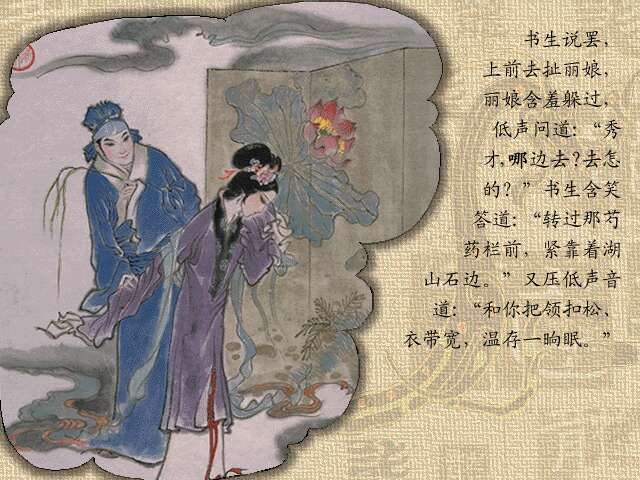 书生说罢，
上前去扯丽娘，
丽娘含羞躲过，
低声问道：“秀
才，哪边去？去怎
的？”书生含笑
答道：“转过那芍
药栏前，紧靠着湖
山石边。”又压低声音
道：“和你把领扣松、
衣带宽，温存一晌眠。”